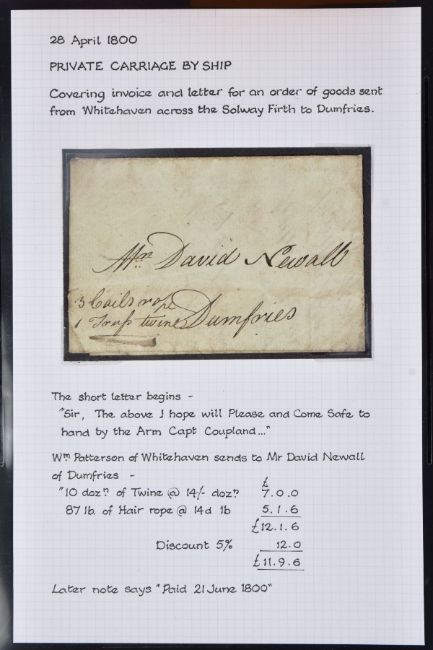 28 April 1800
PRIVATE CARRIAGE BY SHIP
Covering invoice and letter for an order of goods sent
from Whitehaven across the Solway Firth to Dumfries.
Mr. David Newall
3 Coils rope
1 Truss twine Dumfries
The short letter begins -
"Sir, The above I hope will Please and Come Safe to
hand by the Arm Capt Coupland..."
Wm Patterson of Whitehaven sends to Mr David Newall
of Dumfries - £
"10 doz.n of Twine @ 14/- doz.n 7.0.0
87 lb. of Hair rope @ 14d lb 5.1.6
£12.1.6
Discount 5% 12.0
£11.9.6
Later note says "Paid 21 June 1800"